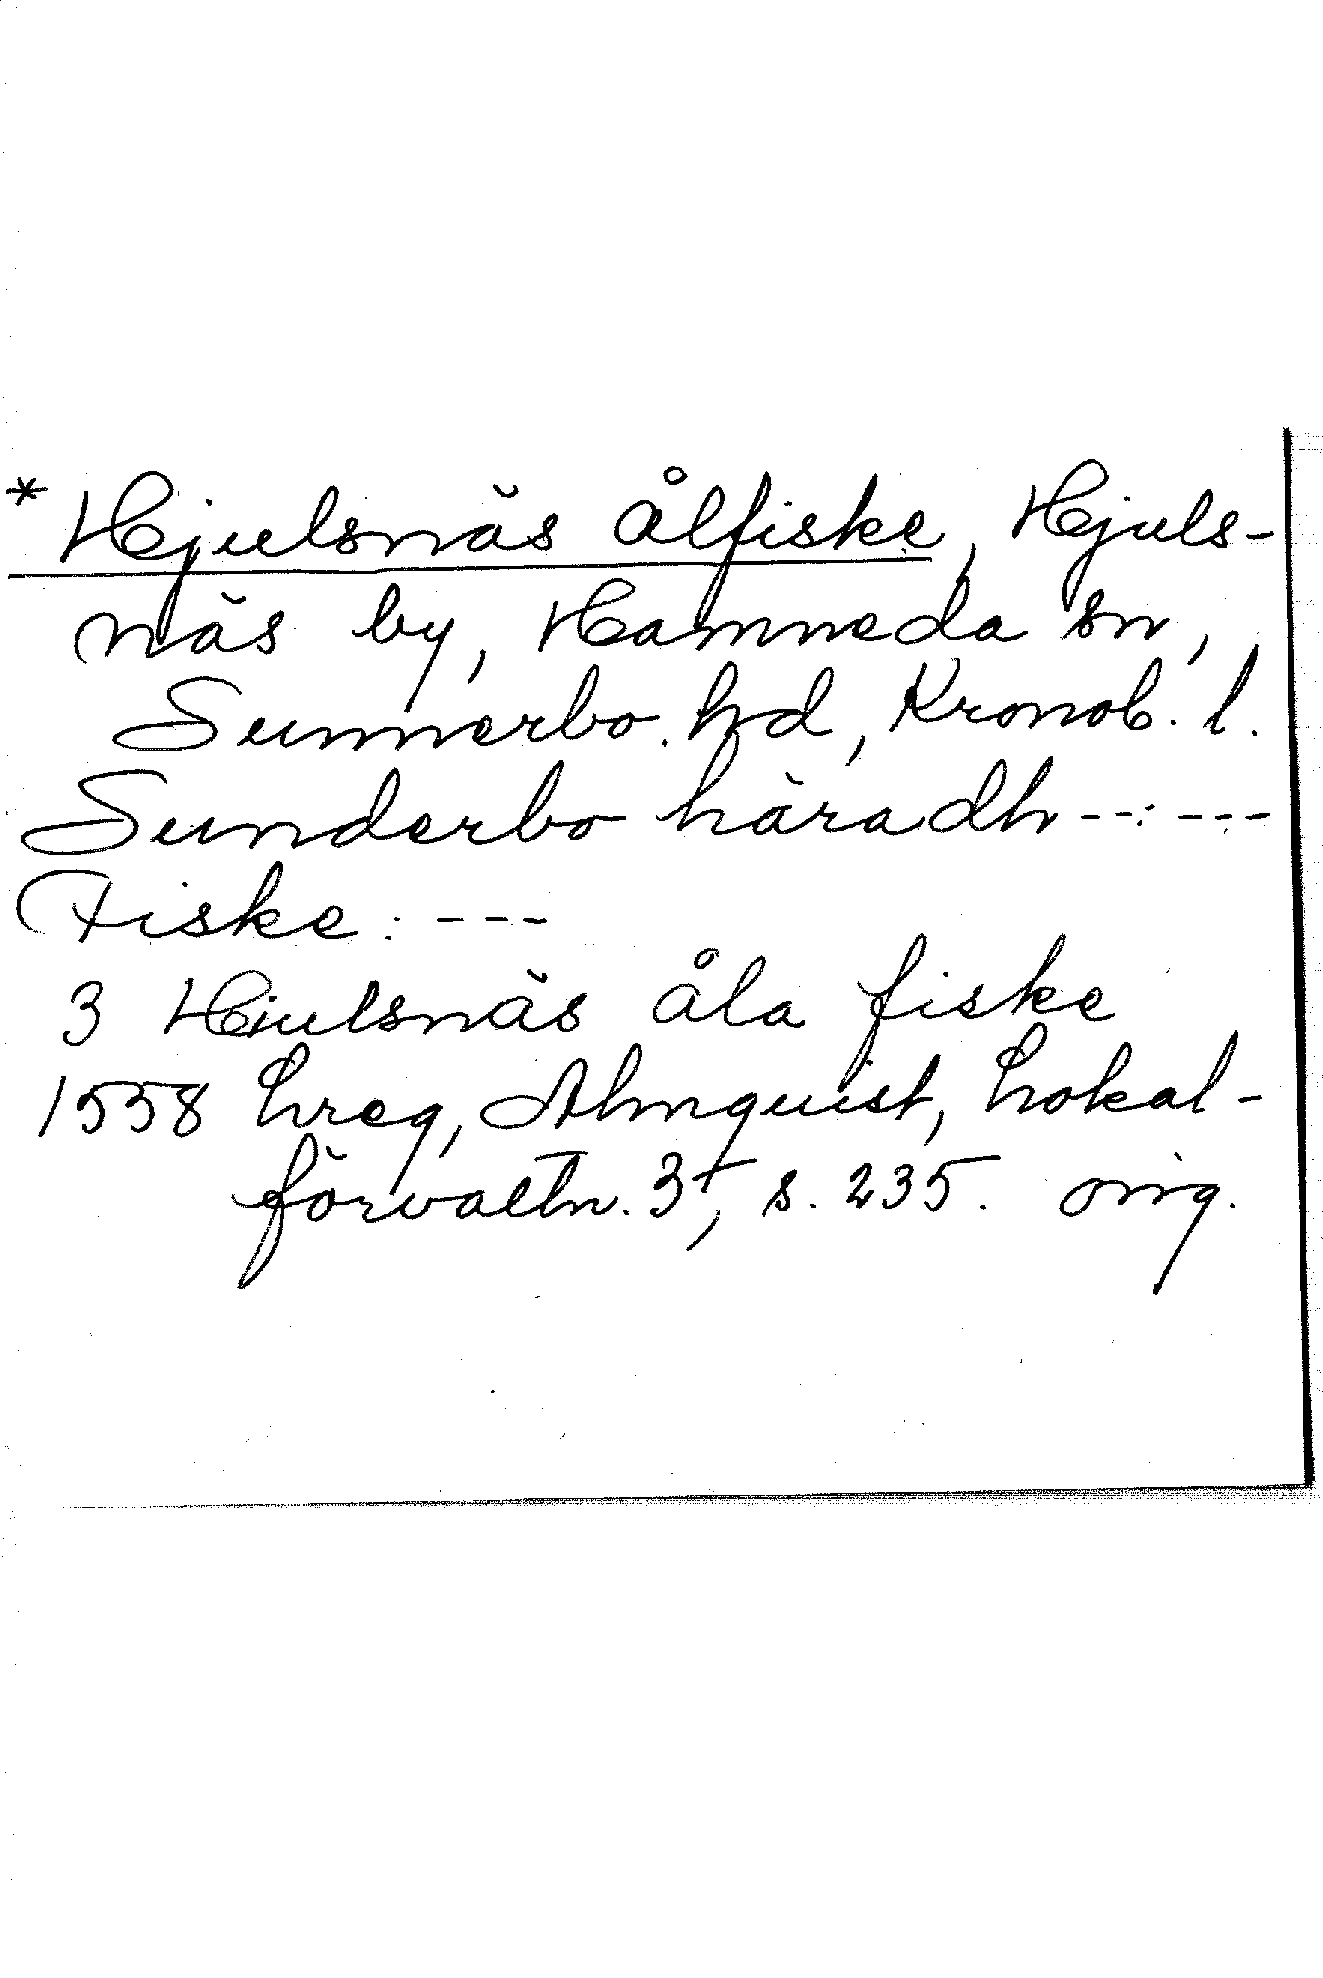 * Hjulsnäs ålfiske, Hjuls-
näs by, Hamneda sn,
Sunnerbo hd, Kronob. l.
Sunderbo häradh --:---
Fiske: ---
3 Hiulsnäs åla fiske
1558 Lreg, Almquist, Lokal-
förvaltn. 3, s. 235. orig.